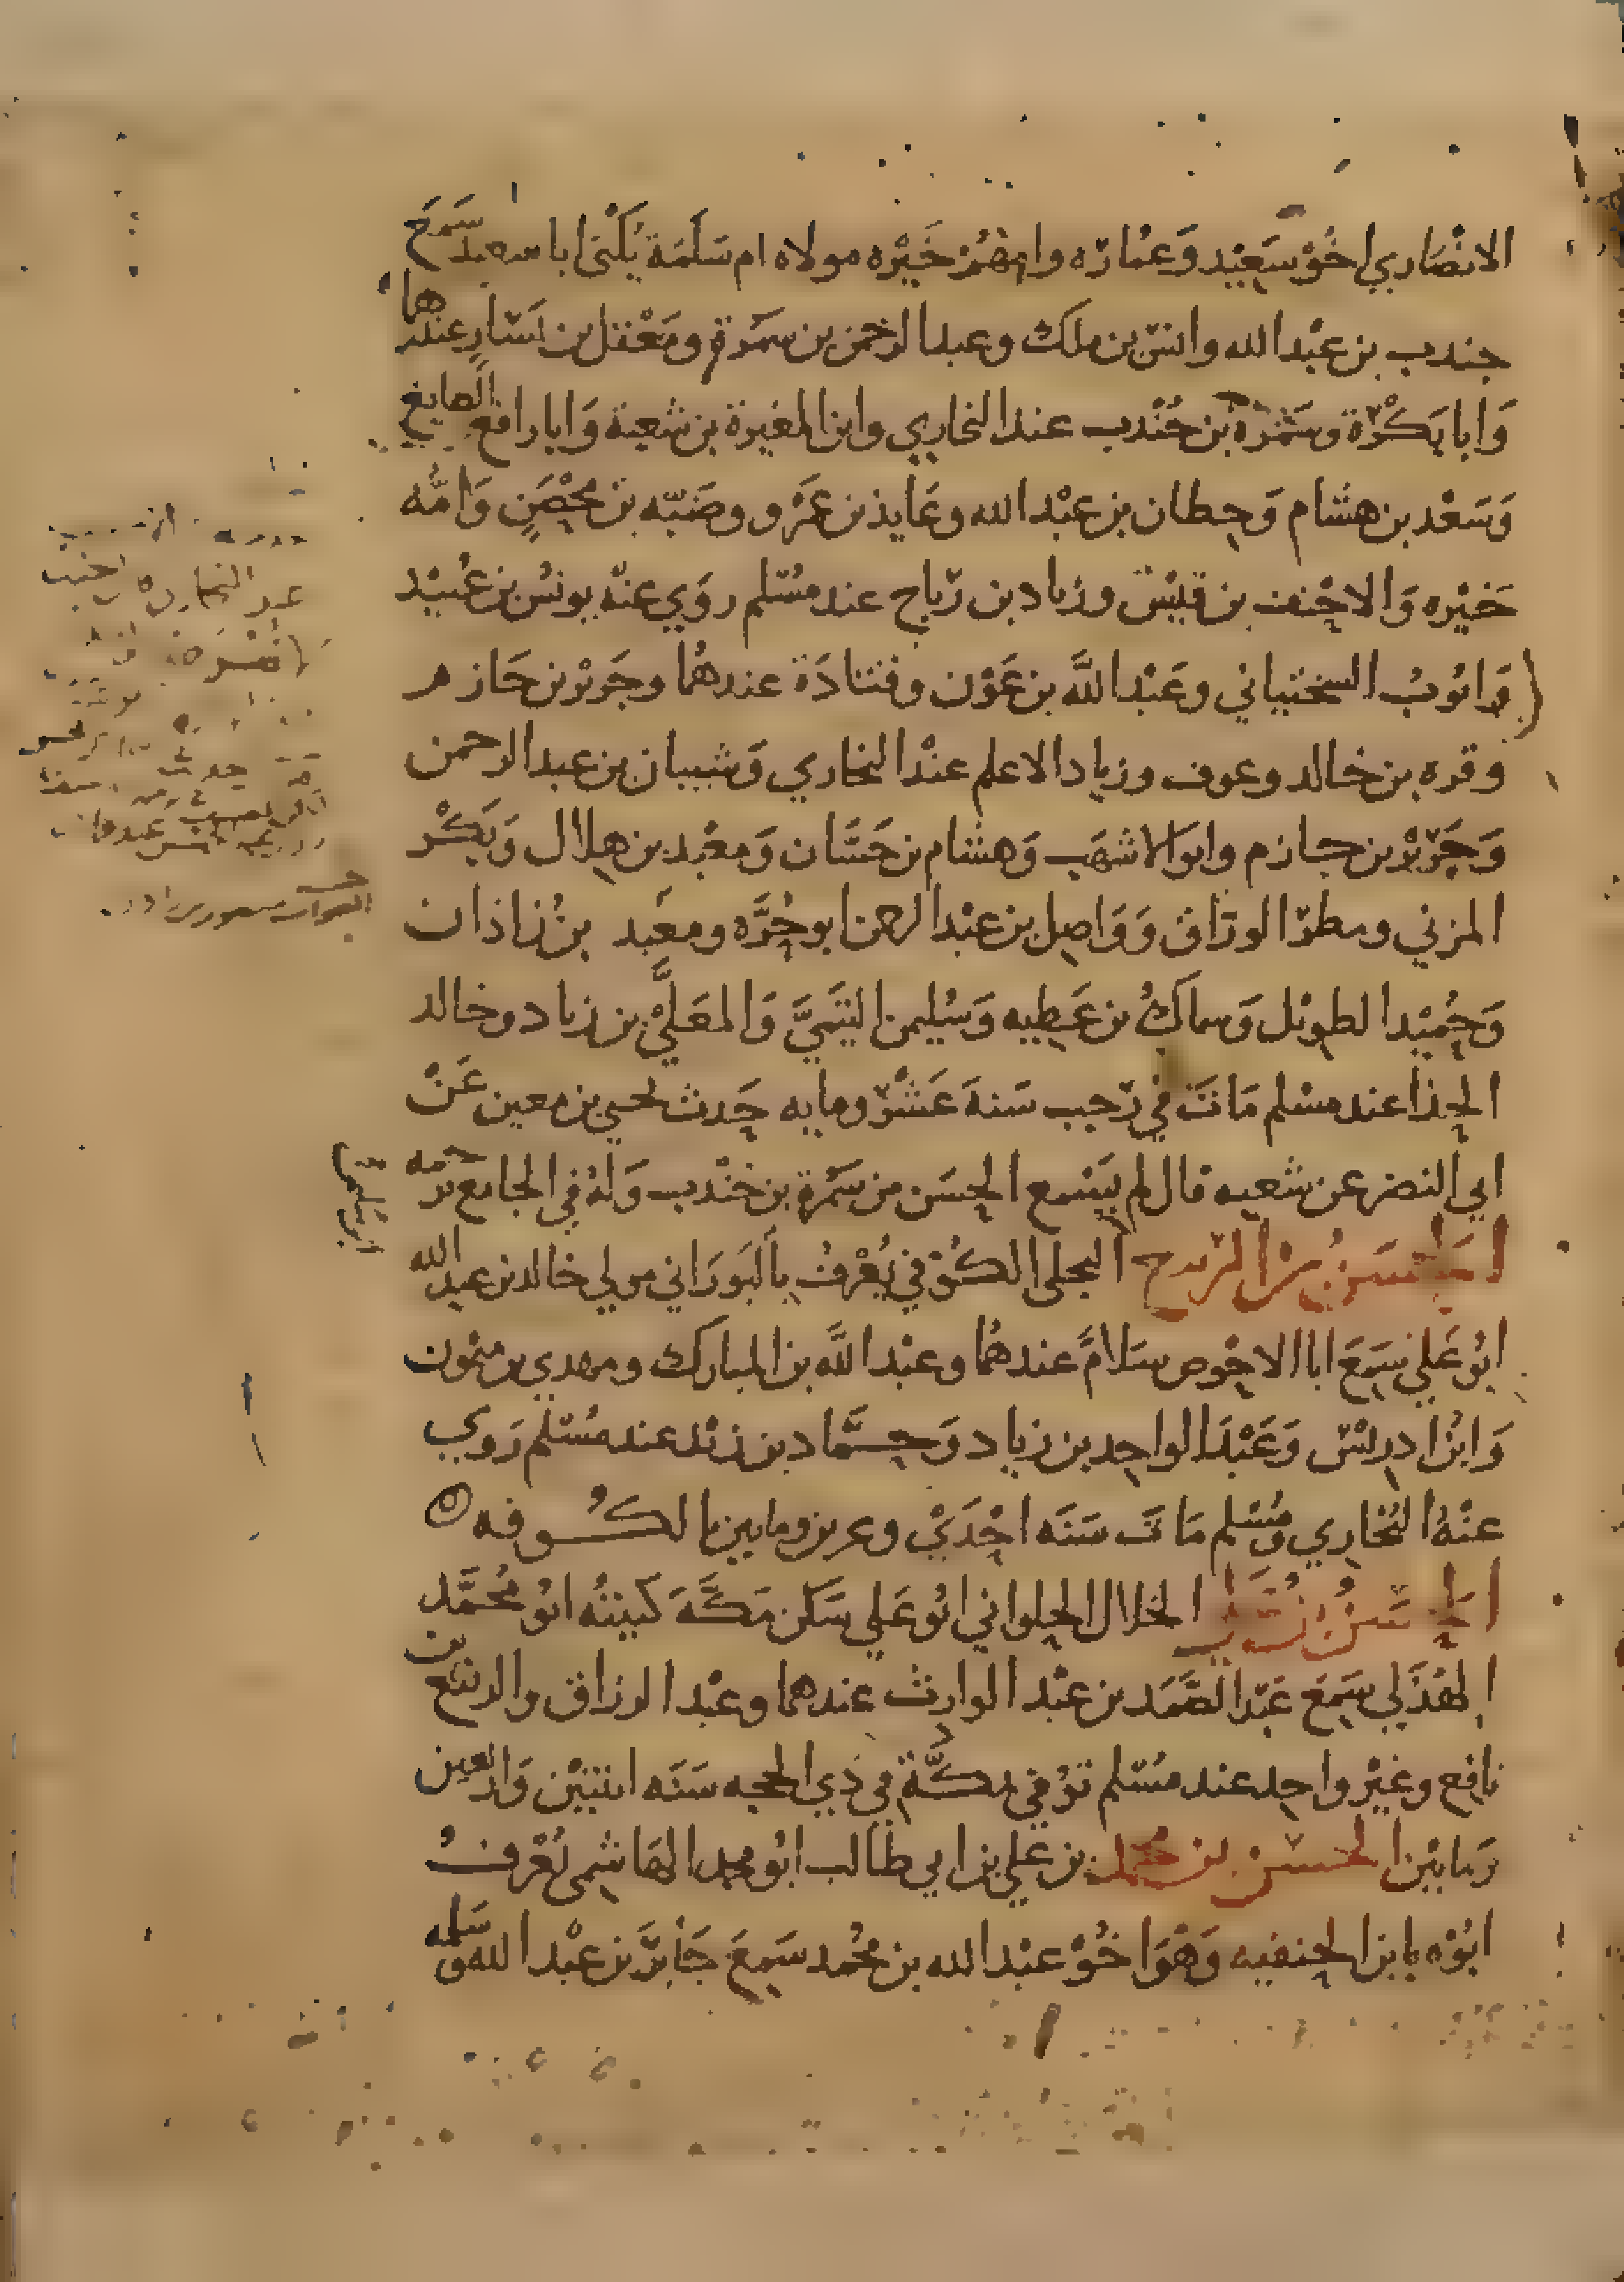 الانصاري اخو سعيد وعماره وامهم خيره مولاه ام سلمة يكنى ابا سعيد سمع
جندب بن عبد الله وانس بن ملك وعبد الرحمن بن سمرة ومعقل بن يسار عندهما
وابا بكرة وسمرة بن جندب عند البخاري وابن المغيرة بن شعبة وابا رافع الصايغ
وسعد بن هشام وحطان بن عبد الله وعايذ بن عمرو وضبه بن محصن وامه
خيره والاحنف بن قيس وزياد بن رياح عند مسلم روي عنه يونس بن عبيد
وايوب السختياني وعبد الله بن عون وقتادة عندهما وجرير بن حازم
وقره بن خالد وعوف وزياد الاعلم عند البخاري وشيبان بن عبد الرحمن
وجرير بن حازم وابو الاشهب وهشام بن حسان ومعبد بن هلال وبكر
المزني ومطر الوراق وواصل بن عبد الرحمن ابو حره ومعبد بن زاذان
وحميد الطويل وسماك بن عطيه وسليمن التيمي والمعلي بن زياد وخالد
الحذا عند مسلم مات في رجب سنة عشر ومايه حدث يحيى بن معين عن
ابي النضر عن شعبه قال لم يسمع الحسن من سمرة بن جندب وله في الجامع ترجمه
الحسن بن الربيع البجلي الكوفي يعرف بالبوراني مولي خالد بن عبد الله
ابو علي سمع ابا الاحوص سلام عندهما وعبد الله بن المبارك ومهدي بن ميمون
وابن ادريس وعبد الواحد بن زياد وحماد بن زيد عند مسلم روي
عنه البخاري ومسلم مات سنه احدي وعرين ومايين بالكوفه
الحسن بن علي الخلال الحلواني ابو علي سكن مكة كنيته ابو محمد
الهذلي سمع عبد الصمد بن عبد الوارث عندهما وعبد الرزاق والربيع بن
نافع وغير واحد عند مسلم توفي بمكة في ذي الحجه سنه اثنتين واربعين
ومايتين الحسن بن محمد بن علي بن ابي طالب ابو محمد الهاشمي يعرف
ابوه بابن الحنفيه وهو اخو عبد الله بن محمد سمع جابر بن عبد الله وسلمه